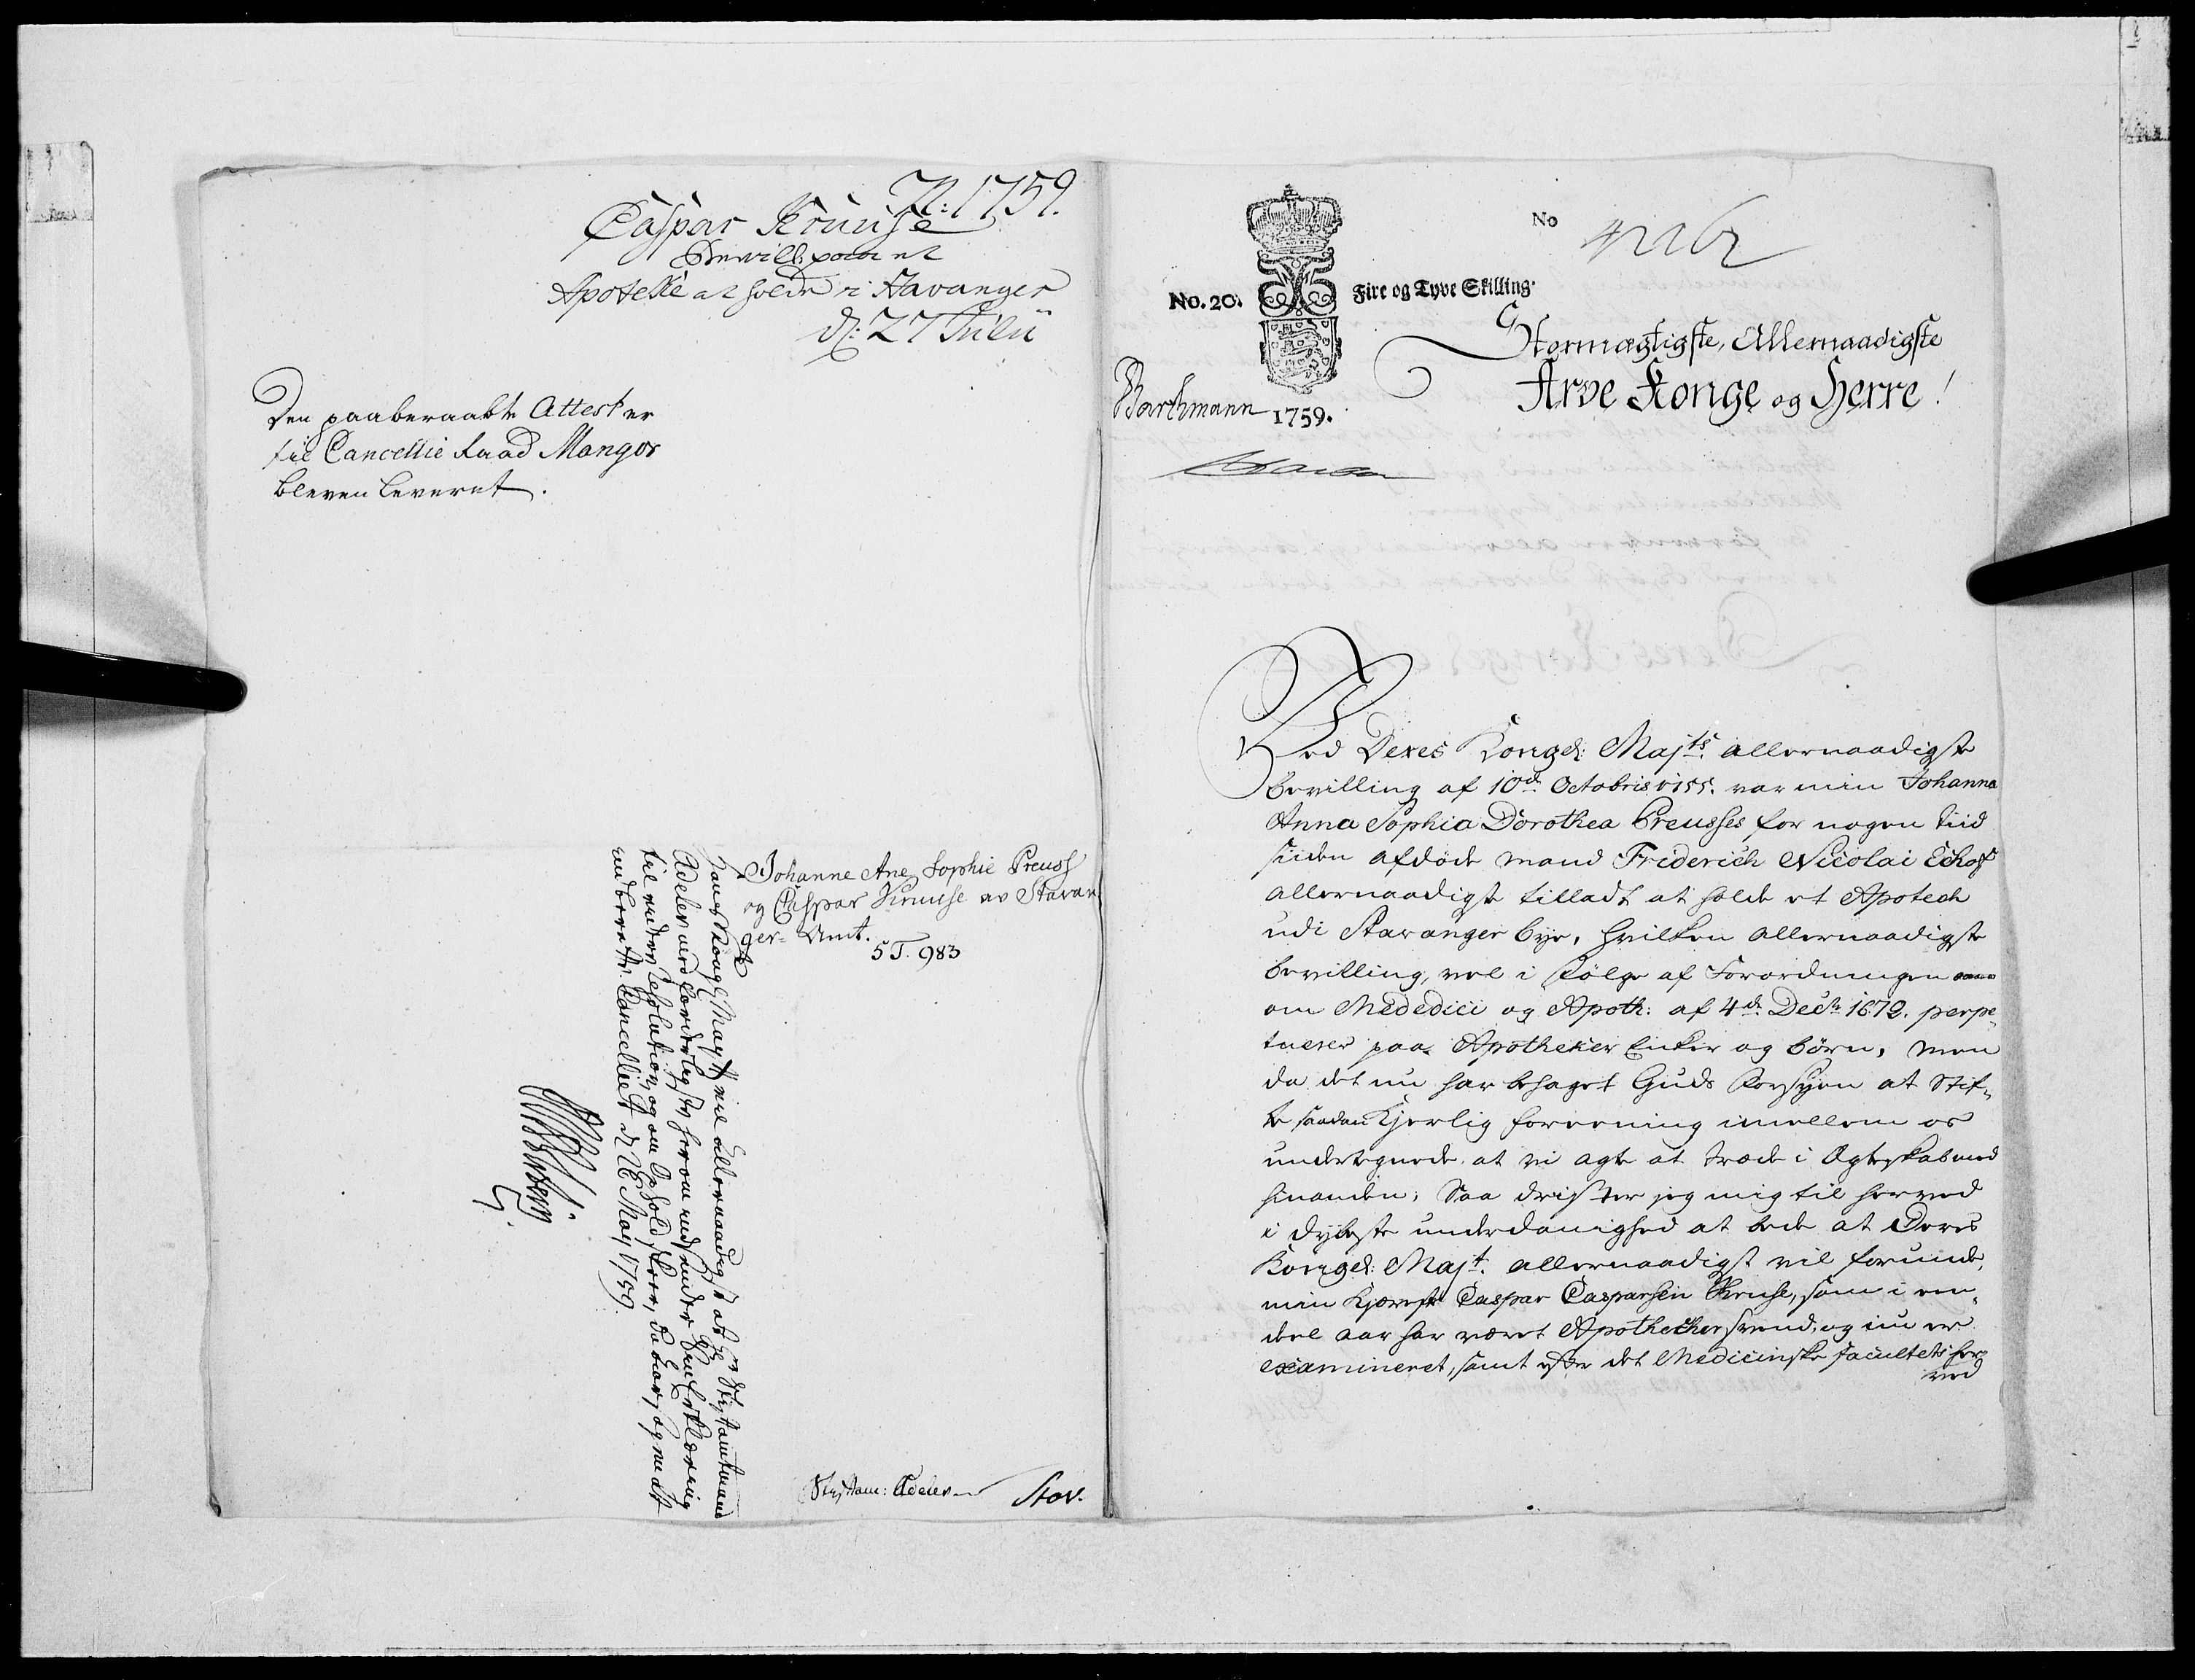 N: 1759.
Caspar Kruuse
Bevill: paa et
Apoteke at holde i Stavanger
d: 27 Julii
Den paaberaabte Attest er
til Cancellie Raad Mangor
bleven leveret.
Johanne Ane Sophie Preuss
og Caspar Kruuse av Stavan
ger Amt.
5 T. 983
Hans Kongl. Mayt vil allernaadigst at Hr Stiftamtmand
Adeler med forderligste herom indsender Sin Erklæring
til videre Resolution, og om Ophold skeer, da aarsagen at
indberette. Cancelliet d 26 May 1759
Stiftam: Adeler
Stav.
No
No. 20.
Fire og Tyve Skilling.
1759.
Barthmann
Stormægtigste, Allernaadigste
Arve Konge og Herre!
Ved Deres Kongel: Majts: allernaadigste
bevilling af 10de Octobris 1755. var min Johanna
Anna Sophia Dorothea Preusses for nogen tiid
siiden afdøde mand Friderich Nicolai Eckhof
allernaadigst tilladt at holde et Apotech
udi Stavanger bye, hvilken allernaadigste
bevilling, vel i følge af Forordningen
om Mededici og Apoth: af 4de Decbr 1672. perpe-
tuerer paa Apotheker Enker og børn, men
da det nu har behaget Guds Forsyen at Stif-
te saadan Kjerlig foreening imellem os
undertegnede, at vi agte at træde i Ægteskab med
hinanden; Saa drister jeg mig til herved
i dybeste underdanighed at bede at Deres
Kongel: Majt. allernaadigst vil forunde,
min Kjæreste Caspar Casparsen Kruse, som i een-
deel aar har været Apothecher svend, og nu er
examineret, samt efter det Medicinske Facultets her-
ved